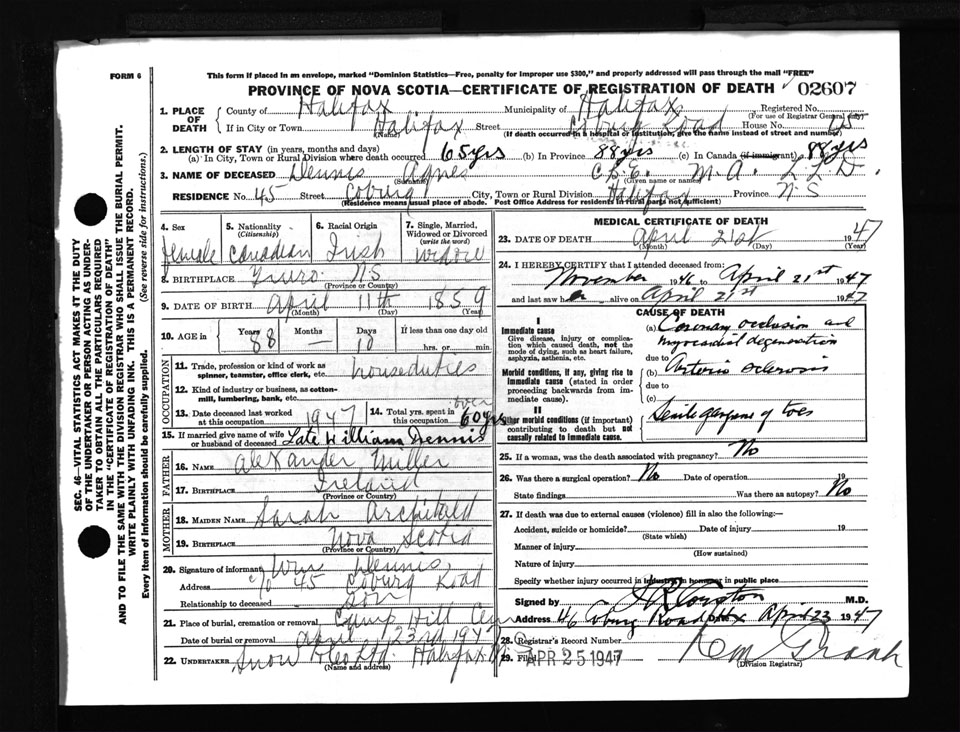 FORM 6
This form if placed in an envelope, marked "Dominion Statistics—Free, penalty for improper use $300," and properly addressed will pass through the mail "FREE"
PROVINCE OF NOVA SCOTIA—CERTIFICATE OF REGISTRATION OF DEATH 02607
1. PLACE OF DEATH
County of Halifax Municipality of Halifax Registered No.
(For use of Registrar General only)
If in City or Town Halifax Street Coburg Road House No. 45
(Name) (If death occurred in a hospital or institution, give the name instead of street and number)
2. LENGTH OF STAY (in years, months and days)
(a) In City, Town or Rural Division where death occurred 65 yrs (b) In Province 88 yrs (c) In Canada (if immigrant) 88 yrs
3. NAME OF DECEASED Dennis Agnes C.B.E. M.A. L.L.D.
(Surname) (Given name or names)
RESIDENCE No. 45 Street Coburg City, Town or Rural Division Halifax Province N-S
(Residence means usual place of abode. Post Office Address for residents in rural parts not sufficient)
4. Sex female
5. Nationality (Citizenship) Canadian
6. Racial Origin Irish
7. Single, Married, Widowed or Divorced (write the word) widow
8. BIRTHPLACE Truro NS
(Province or Country)
9. DATE OF BIRTH April 11th 1859
(Month) (Day) (Year)
10. AGE in Years 88 Months — Days 10 If less than one day old
hrs. or min.
OCCUPATION
11. Trade, profession or kind of work as spinner, teamster, office clerk, etc. houseduties
12. Kind of industry or business, as cotton-mill, lumbering, bank, etc.
13. Date deceased last worked at this occupation 1947
14. Total yrs. spent in this occupation over 60 yrs
15. If married give name of wife or husband of deceased Late William Dennis
FATHER
16. NAME Alexander Miller
17. BIRTHPLACE Ireland
(Province or Country)
MOTHER
18. MAIDEN NAME Sarah Archibald
19. BIRTHPLACE Nova Scotia
(Province or Country)
20. Signature of informant Wm Dennis
Address c/o 45 Coburg Road
Relationship to deceased son
21. Place of burial, cremation or removal Camp Hill Cem
Date of burial or removal April 23rd 1947
22. UNDERTAKER Snow & Co Ltd. Halifax N.S.
(Name and address)
MEDICAL CERTIFICATE OF DEATH
23. DATE OF DEATH April 21st 1947
(Month) (Day) (Year)
24. I HEREBY CERTIFY that I attended deceased from:
November 1946 to April 21st 1947
and last saw her alive on April 21st 1947
CAUSE OF DEATH
I
Immediate cause
Give disease, injury or complication which caused death, not the mode of dying, such as heart failure, asphyxia, asthenia, etc.
(a) Coronary occlusion and
myocardial degeneration
due to
Morbid conditions, if any, giving rise to immediate cause (stated in order proceeding backwards from immediate cause).
(b) Arterio sclerosis
due to
(c)
II
Other morbid conditions (if important) contributing to death but not causally related to immediate cause.
Senile gangrene of toes
25. If a woman, was the death associated with pregnancy? No
26. Was there a surgical operation? No Date of operation 19
State findings Was there an autopsy? No
27. If death was due to external causes (violence) fill in also the following:—
Accident, suicide or homicide? Date of injury 19
(State which)
Manner of injury
(How sustained)
Nature of injury
Specify whether injury occurred in industry, in home, or in public place
Signed by M.D.
Address 116 Coburg Road Hx Date April 23 1947
28. Registrar's Record Number
29. Filed APR 25 1947
(Division Registrar)
SEC. 46—VITAL STATISTICS ACT MAKES IT THE DUTY
OF THE UNDERTAKER OR PERSON ACTING AS UNDER-
TAKER TO OBTAIN ALL THE PARTICULARS REQUIRED
IN THE "CERTIFICATE OF REGISTRATION OF DEATH"
AND TO FILE THE SAME WITH THE DIVISION REGISTRAR WHO SHALL ISSUE THE BURIAL PERMIT.
WRITE PLAINLY WITH UNFADING INK. THIS IS A PERMANENT RECORD.
Every item of information should be carefully supplied. (See reverse side for instructions.)